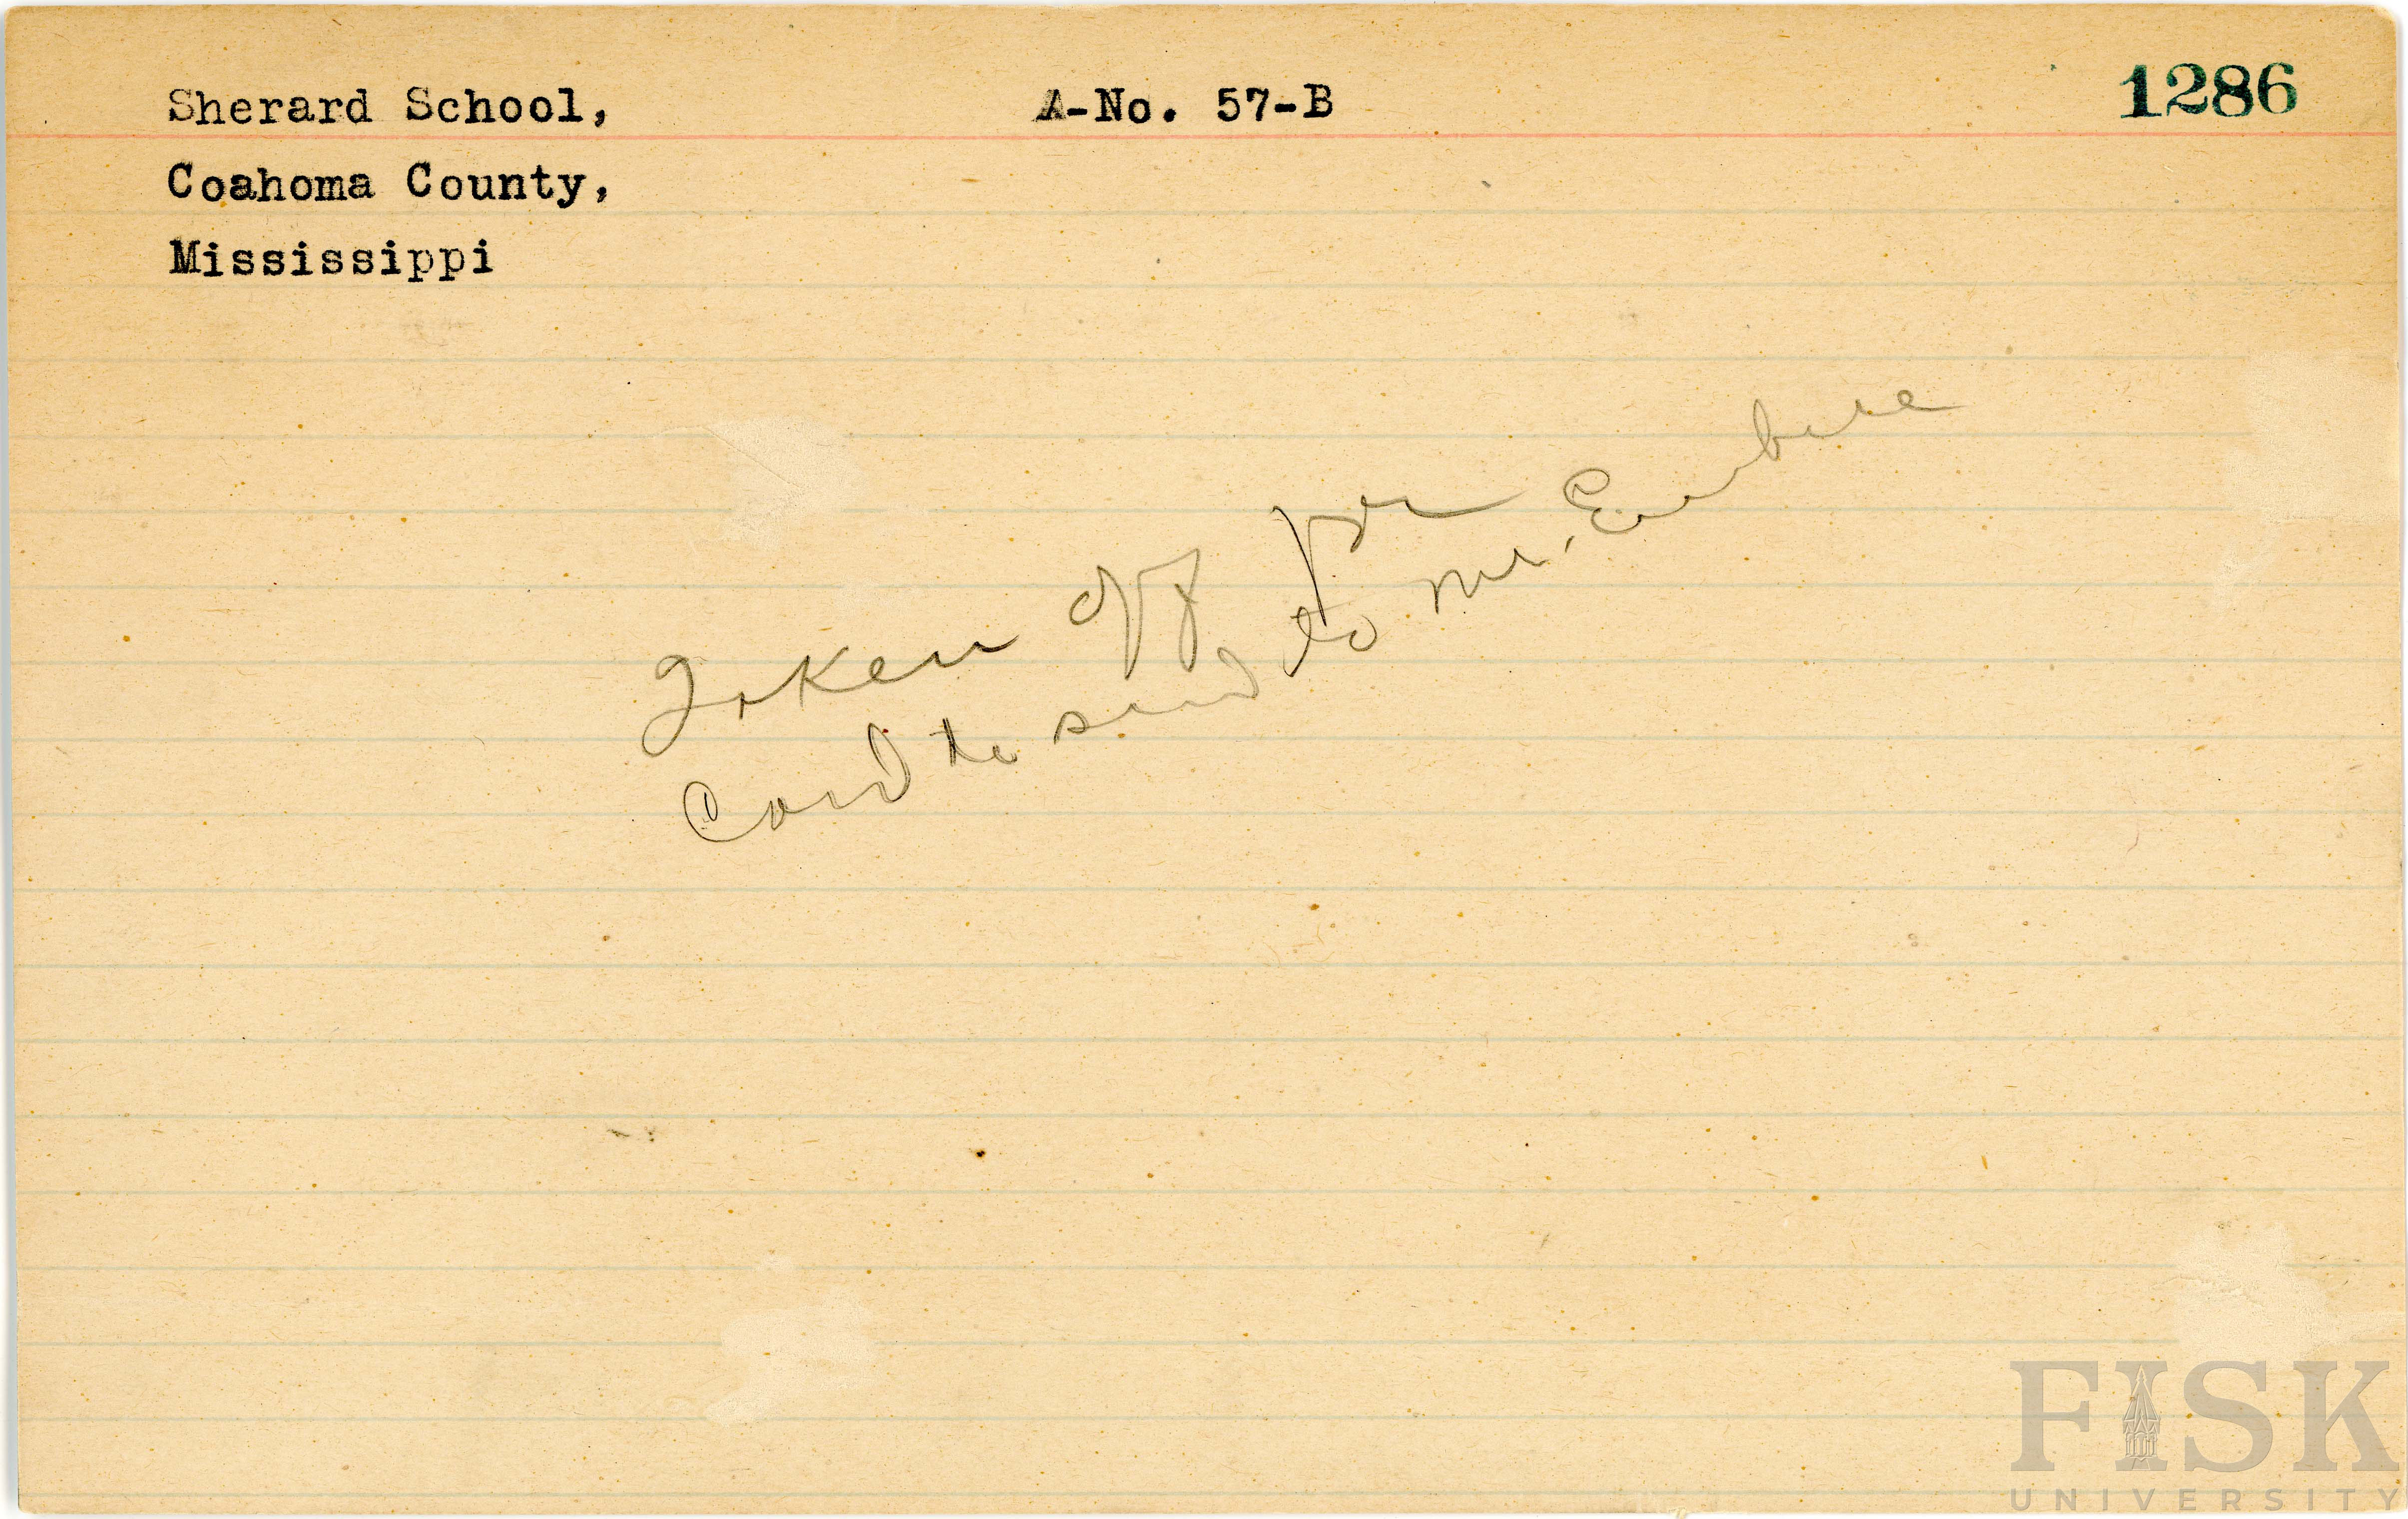 Sherard School, A-No. 57-B 1286
Coahoma County,
Mississippi
Taken off for
Card to send to Mr.
FISK
UNIVERSITY